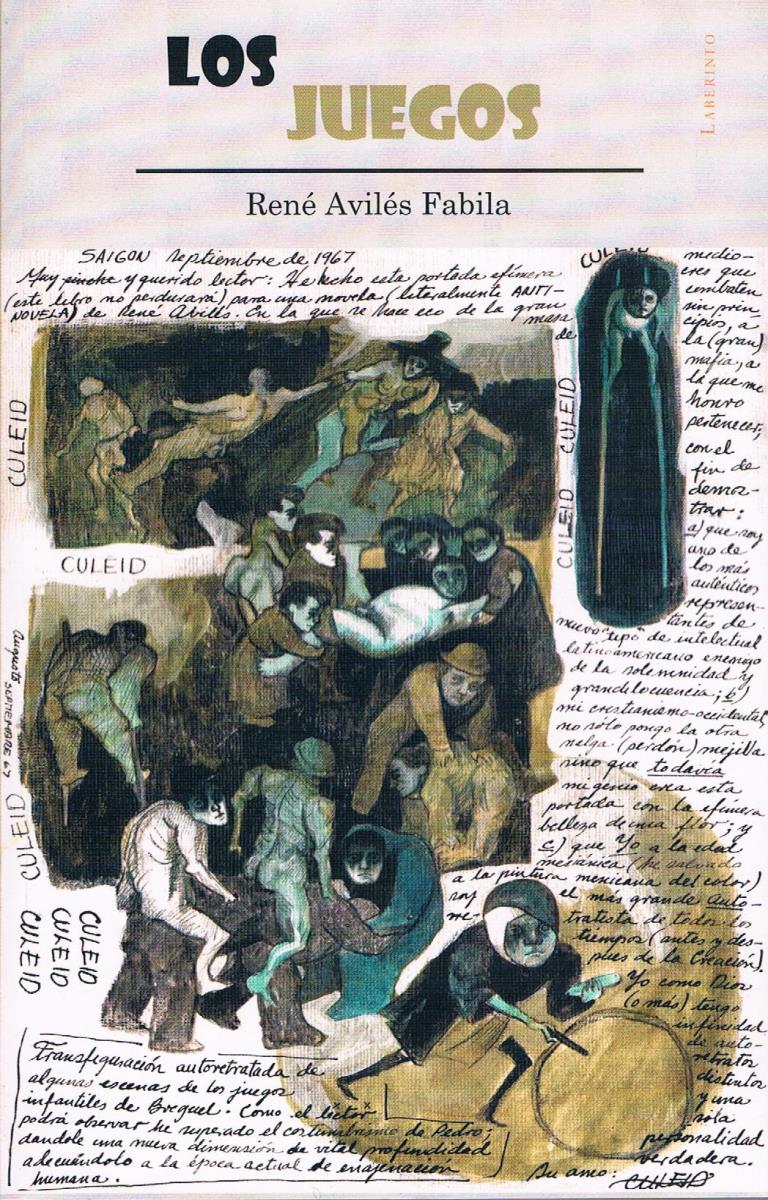 LOS
JUEGOS
LABERINTO
René Avilés Fabila
SAIGON septiembre de 1967
Muy pinche y querido lector: He hecho esta portada efímera
(este libro no perdurará) para una novela (literalmente ANTI-
NOVELA) de René Avilés. En la que se hace eco de la gran
masa
de
medio-
cres que
combaten
sin prin-
cipios, a
la (gran)
mafia, a
la que me
honro
pertenecer,
con el
fin de
demos-
trar:
a) que soy
uno de
los más
auténticos
represen-
tantes de
nuevo "tipo" de intelectual
latinoamericano enemigo
de la solemnidad y
grandelocuencia; b)
mi cristianismo-occidental
no sólo pongo la otra
nalga (perdón) mejilla
sino que todavía
mi genio crea esta
portada con la efímera
belleza de una flor; y
c) que Yo a la edad
mecánica (he salvado
a la pintura mexicana del color)
soy el más grande auto-
rre- tratista de todos los
tiempos (antes y des-
pues de la Creación).
Yo como Dios
(o más) tengo
infinidad
de auto-
retratos
distintos
y una
sola
personalidad
verdadera.
Su amo:
CULEID
CULEID
CULEID
CULEID
CULEID
CULEID
Augusto SEPTIEMBRE 67
CULEID
CULEID
CULEID
CULEID
Transfiguración autoretratada de
algunas escenas de los juegos
infantiles de Breguel. Como el lictor
podrá observar he superado el costumbrismo de Pedro;
dandole una nueva dimensión de vital profundidad
adecuándolo a la época actual de enajenación
humana.